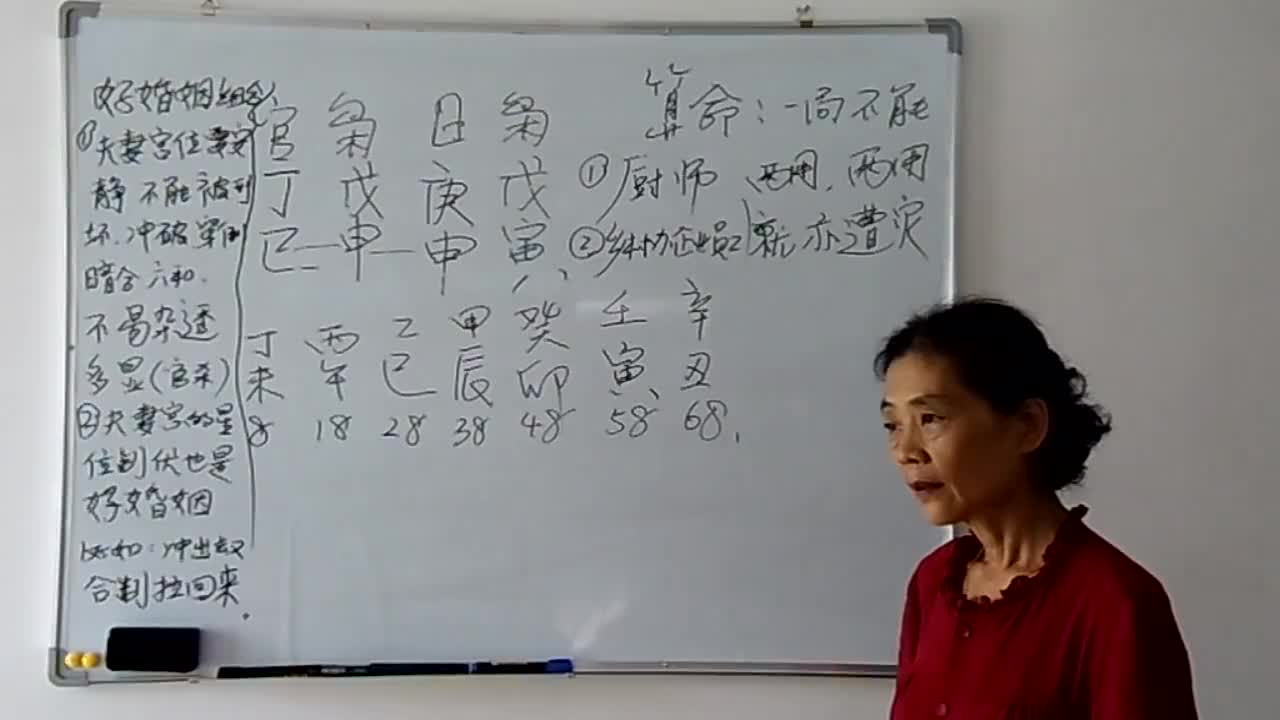 好婚姻组合
①夫妻宫位要安
静不能被刑
坏.冲破穿倒
暗合六和.
不易杂透
多显(官杀)
②夫妻宫的星
位制伏也是
好婚姻
比如:冲出去又
合制拉回来.
官 枭 日 枭
丁 戊 庚 戊
巳 申 申 寅
丁 丙 乙 甲 癸 壬 辛
未 午 巳 辰 卯 寅、 丑
8 18 28 38 48 58 68.
算命:一局不能
①厨师 两用.两用
②乡协企业员工 就亦遭灾